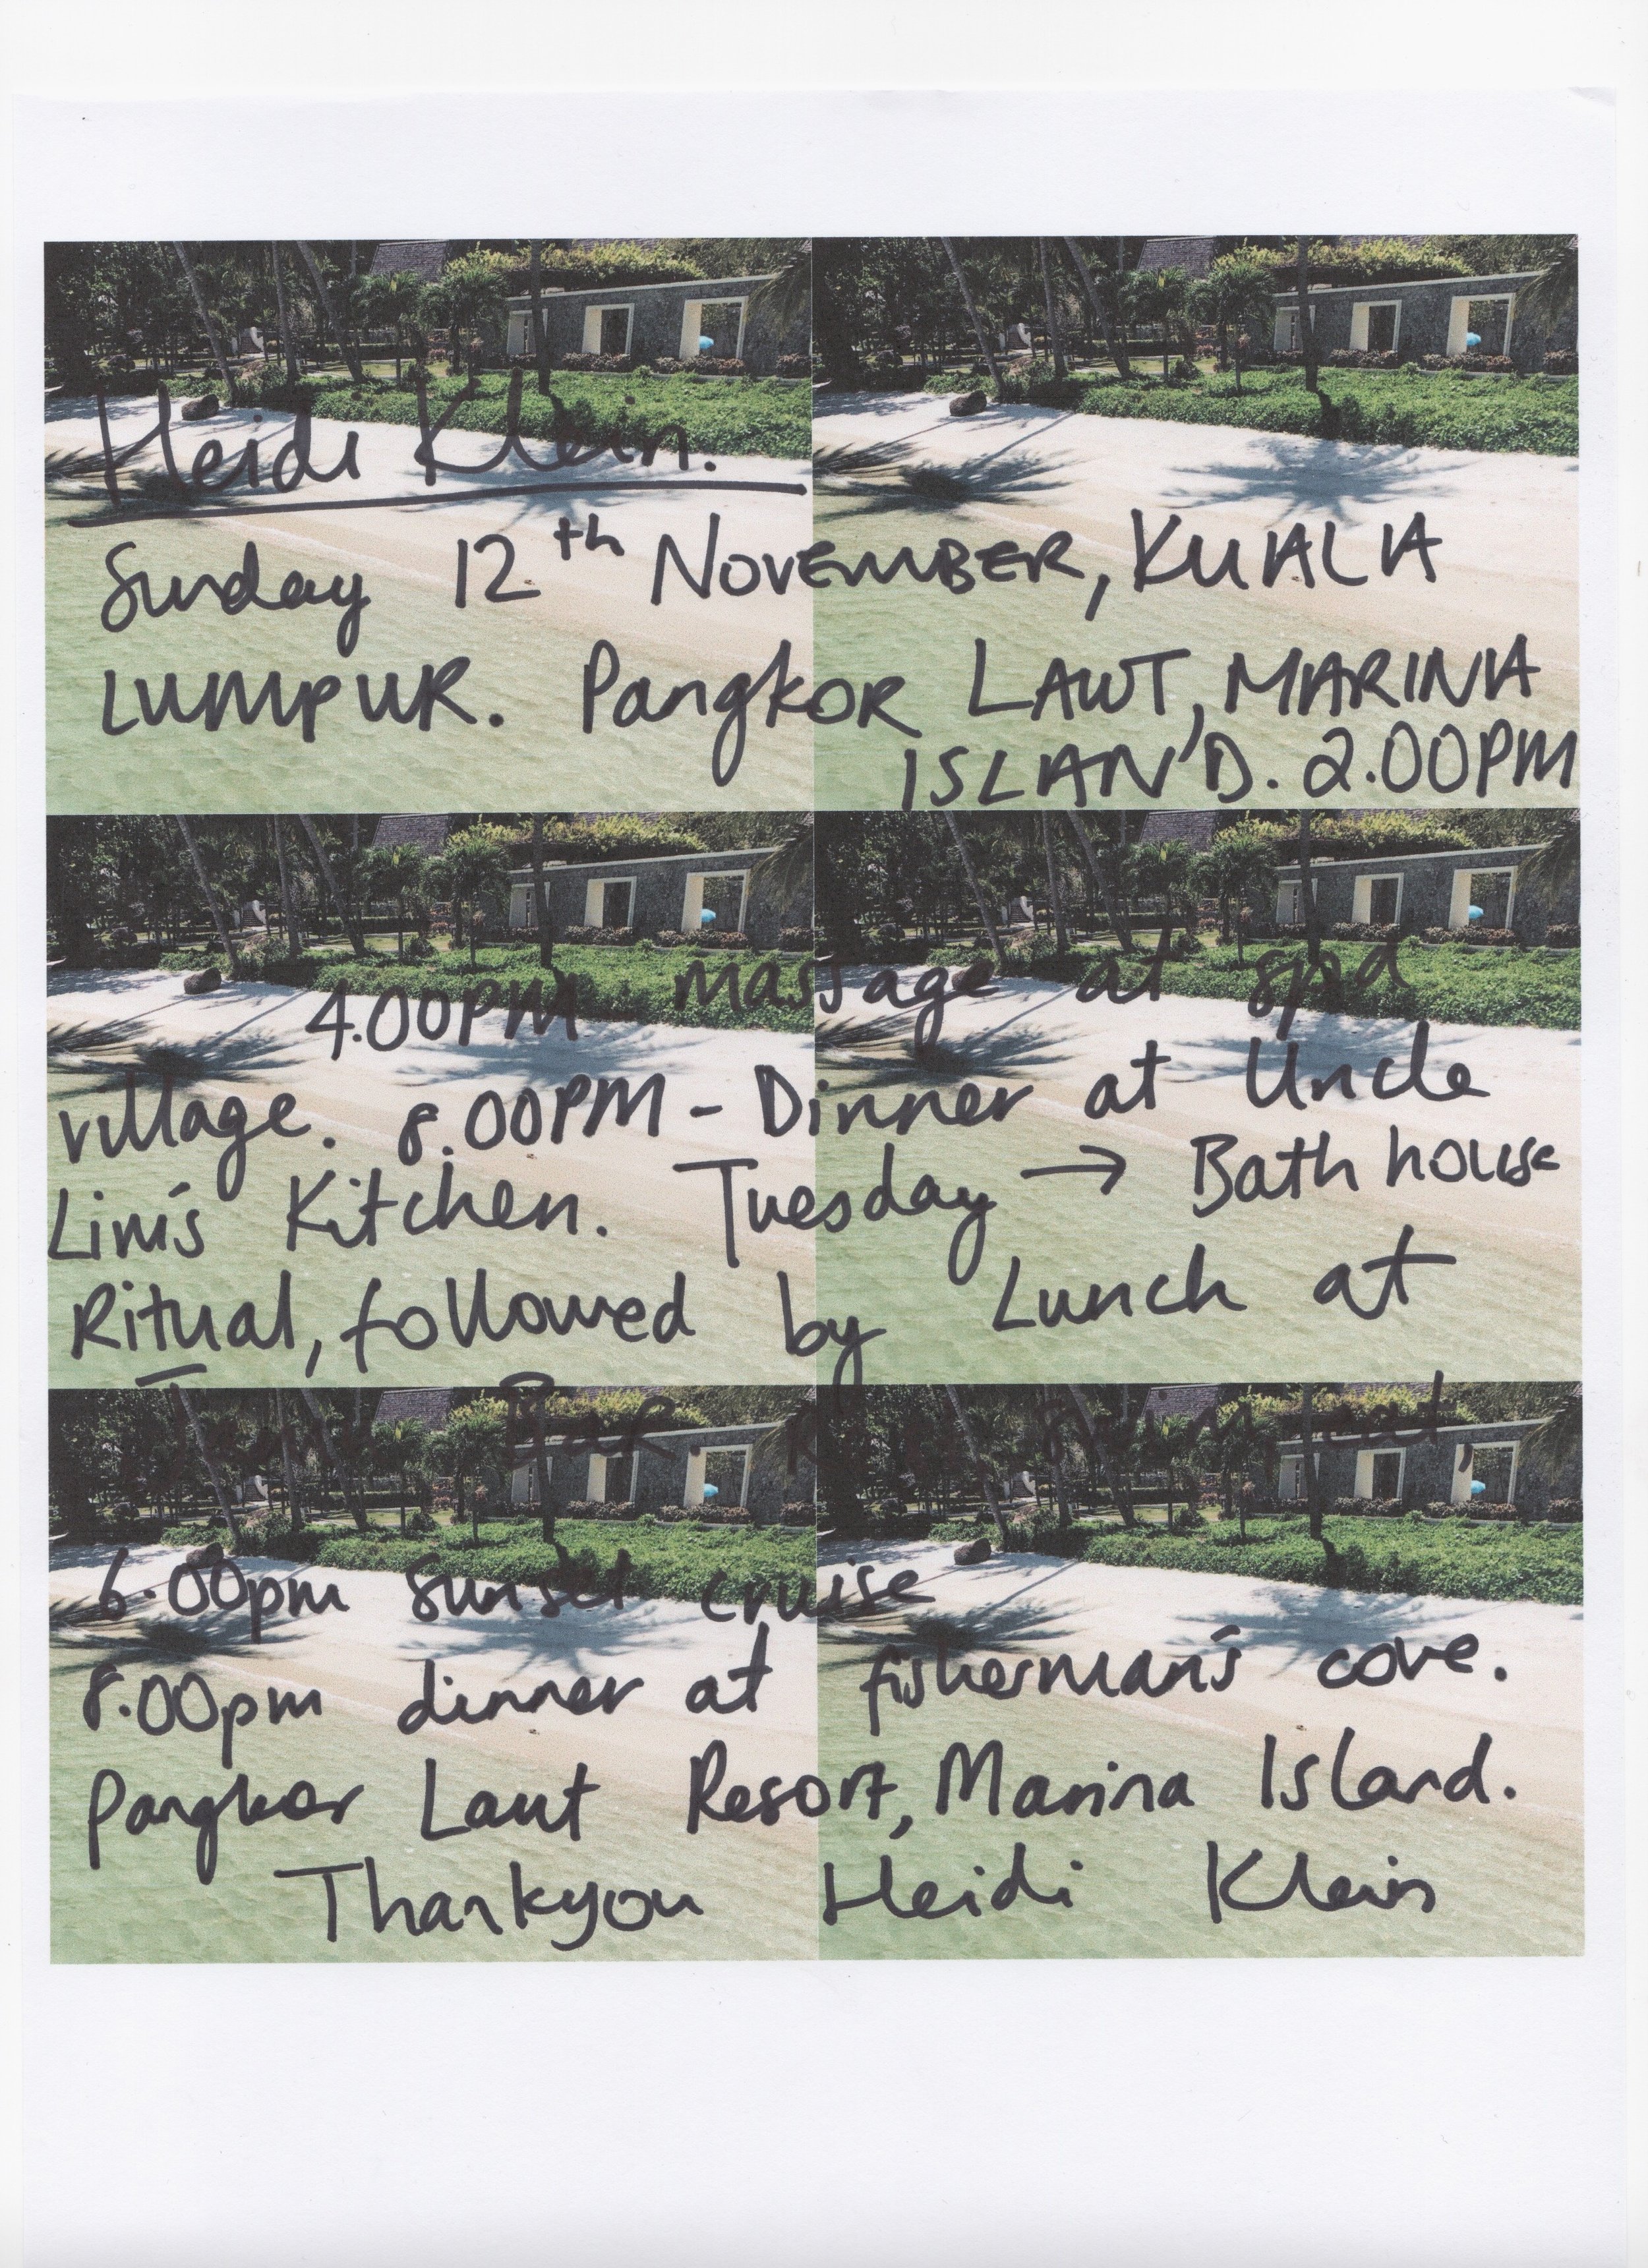 Heidi Klein.
Sunday 12th NOVEMBER, KUALA
LUMPUR. PangkOR LAUT, MARINA
ISLAN'D. 2.00PM
4.00PM massage at spa
village. 8.00PM - Dinner at Uncle
Lim's Kitchen. Tuesday → Bath house
Ritual, followed by Lunch at
Bar. swim, eat,
6.00pm sunset cruise
8.00pm dinner at fisherman's cove.
Pangkor Laut Resort, Marina Island.
Thankyou Heidi Klein